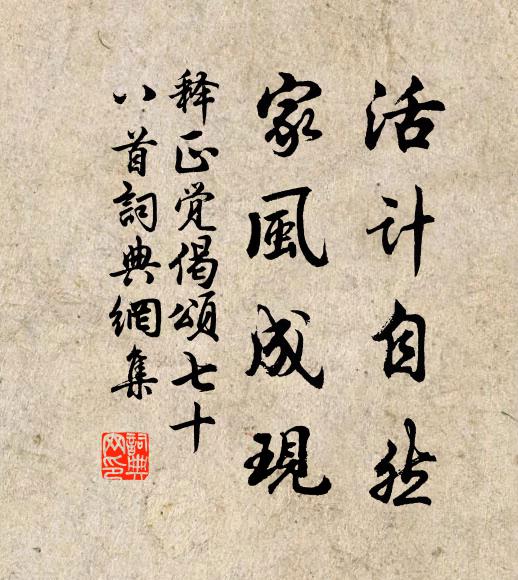 活计自然
家風成現
释正觉偈頌七十
八首詞典網集
詞典网印